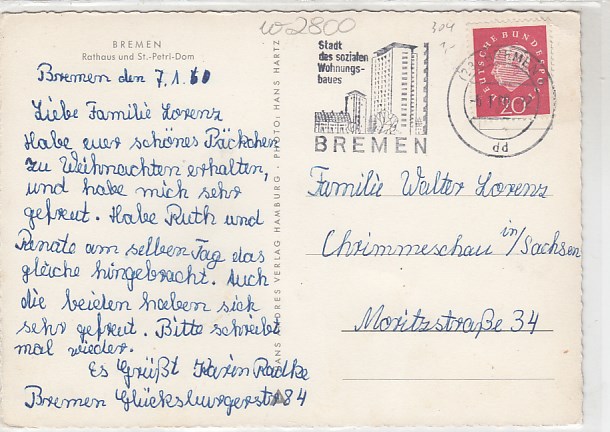 W-2800
304
BREMEN
Rathaus und St.-Petri-Dom
Bremen den 7.1.60
Liebe Familie Lorenz
Habe euer schönes Päckchen
zu Weihnachten erhalten,
und habe mich sehr
gefreut. Habe Ruth und
Renate am selben Tag das
gleiche hingebracht. Auch
die beiden haben sich
sehr gefreut. Bitte schreibt
mal wieder.
Es Grüßt Karin Radke
Bremen Glücksburgerstr 84
HANS ANDRES VERLAG HAMBURG · PHOTO: HANS HARTZ
Stadt
des sozialen
Wohnungs-
baues
BREMEN
DEUTSCHE BUNDESPOST
20
dd
Familie Walter Lorenz
Chrimmeschau in/Sachsen
Moritzstraße 34